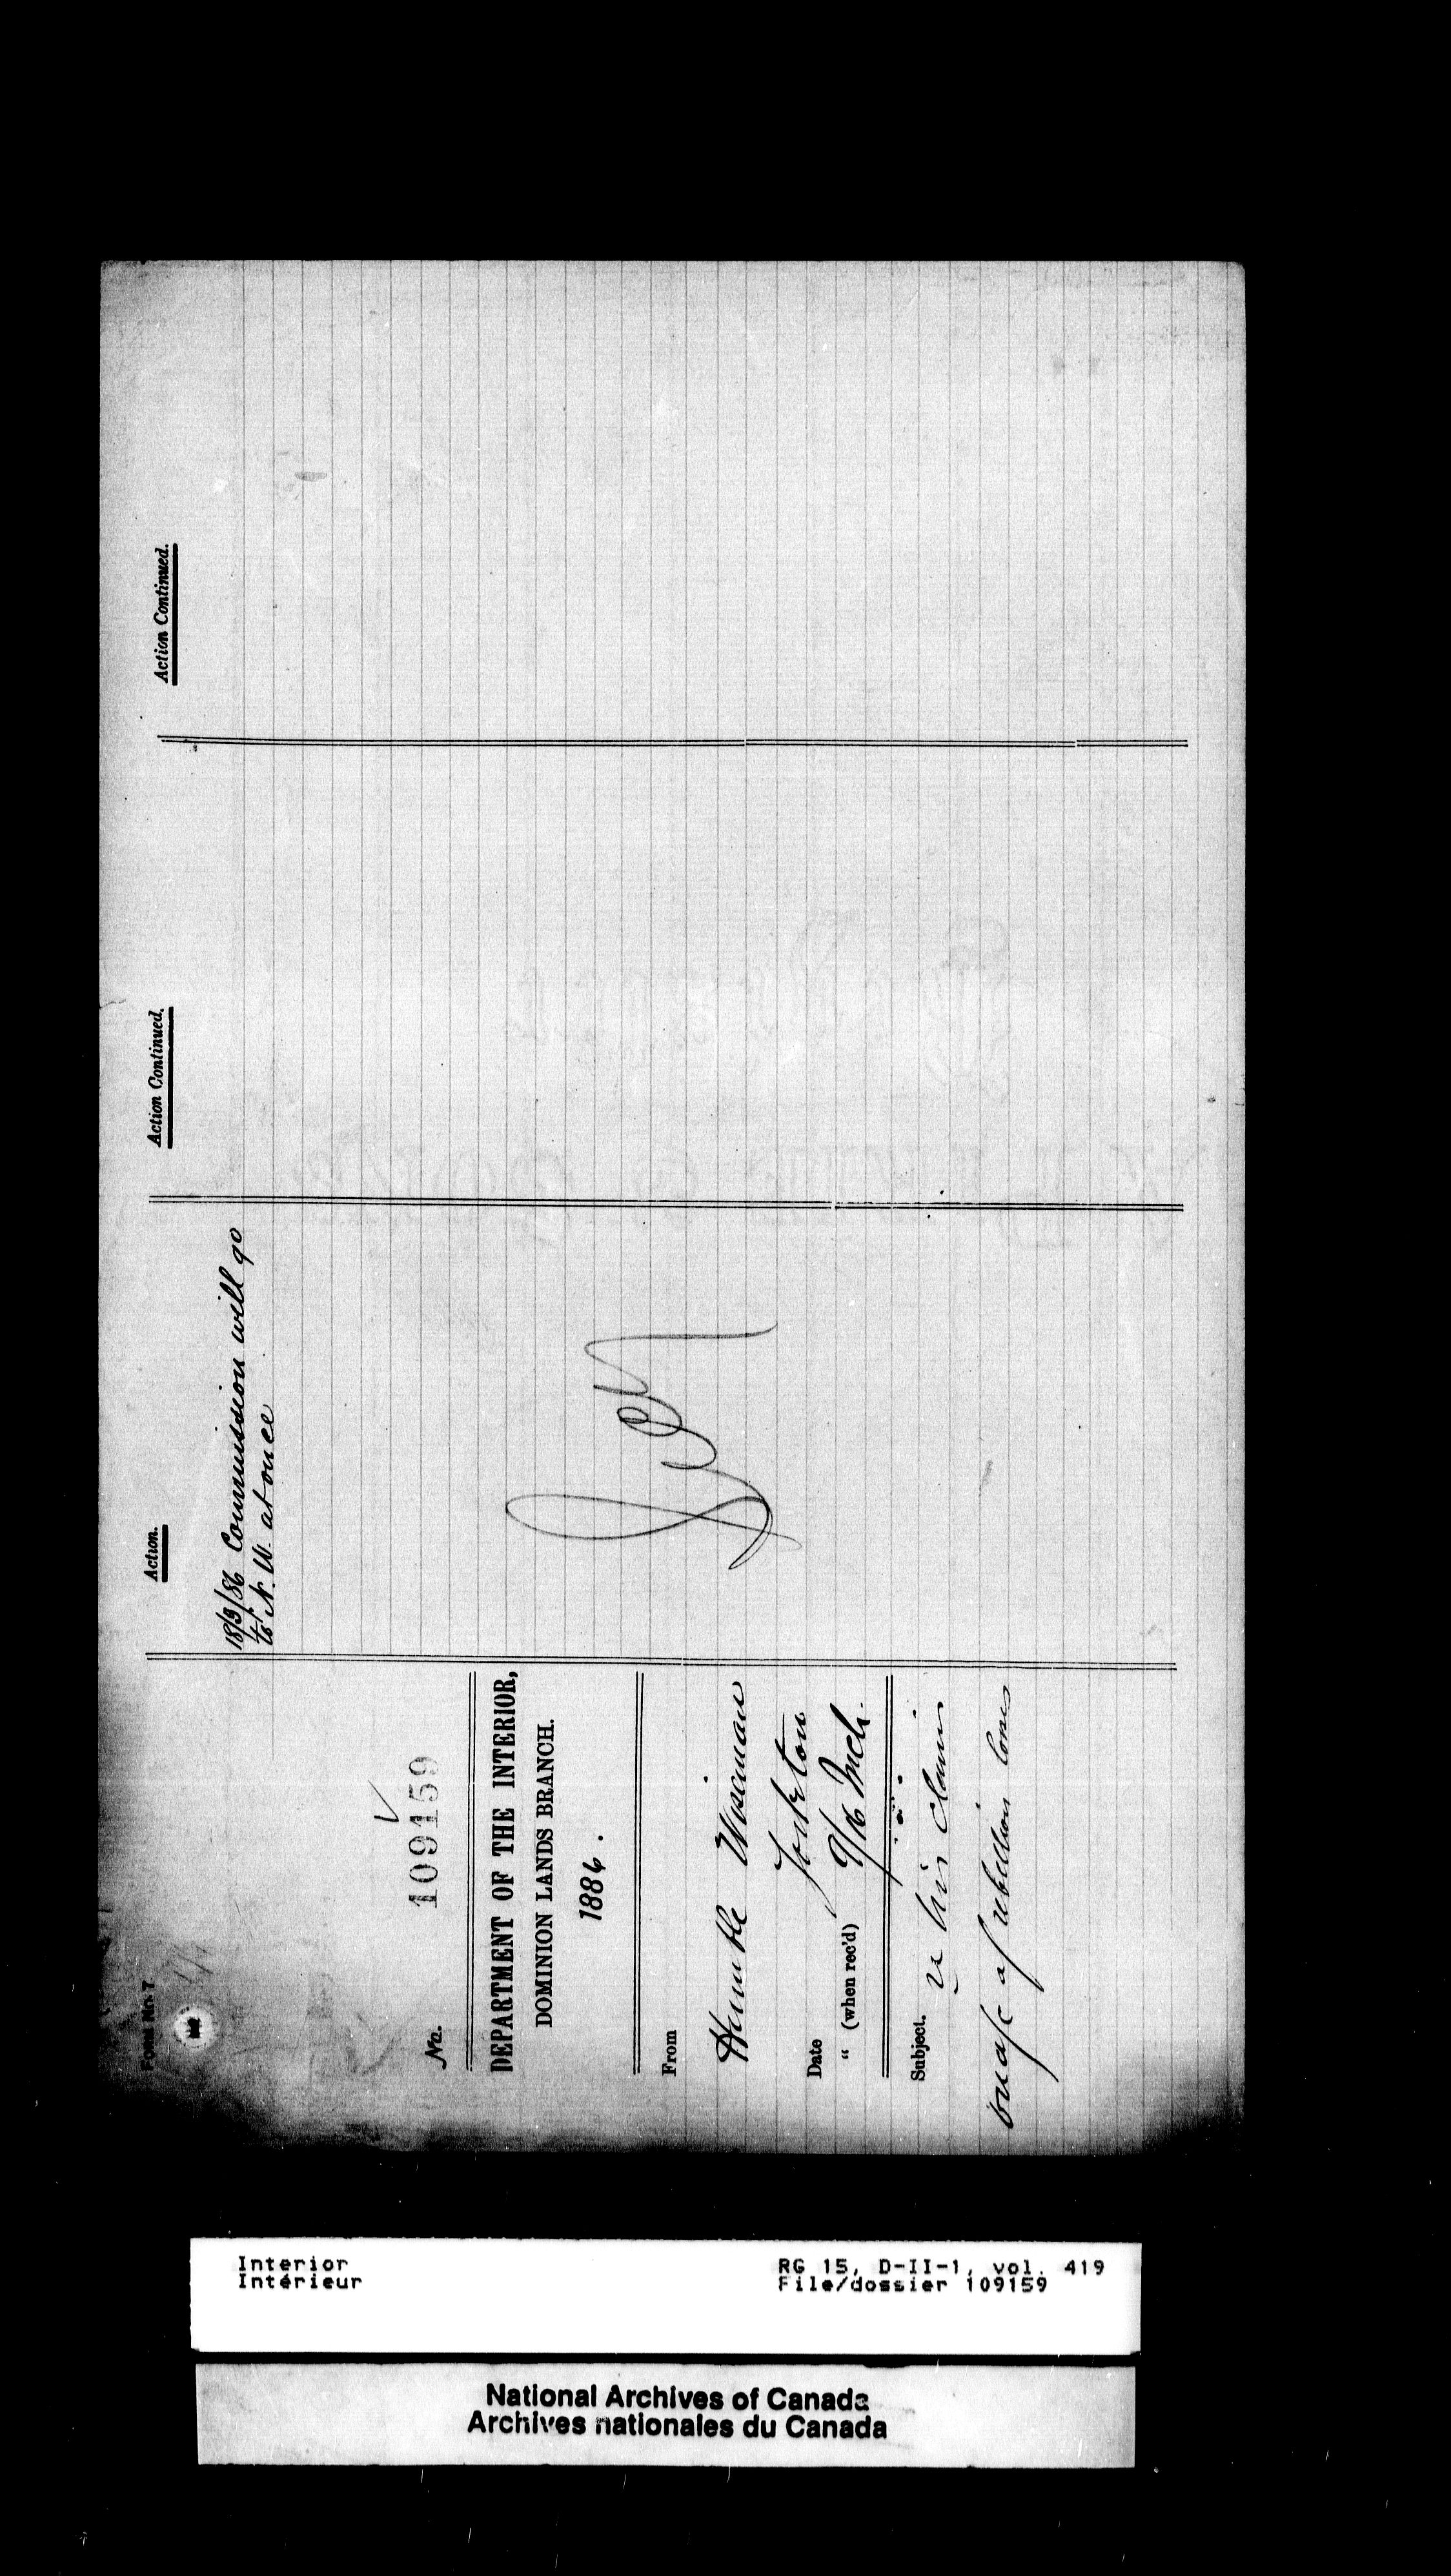 Form No. 7
No. 109159
DEPARTMENT OF THE INTERIOR,
DOMINION LANDS BRANCH.
1886.
From
Humble Wiseman
Yorkton
Date 9/16 Mch.
" (when rec'd)
Subject.
his claim
of rebellion losses
Action.
18/3/86 Commission will go
to N. W. at once
Action Continued.
Action Continued.
Interior
Intérieur
RG 15, D-II-1, vol. 419
File/dossier 109159
National Archives of Canada
Archives nationales du Canada